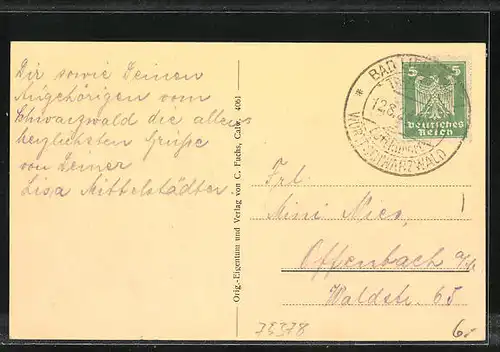 Dir sowie Deinen
Angehörigen vom
Schwarzwald die aller-
herzlichsten Grüße
von Deiner
Lisa Mittelstädter.
Orig.-Eigentum und Verlag von C. Fuchs, Calw. 4061
BAD
12.8.
WÜRTT. SCHWARZWALD
5 5
Deutsches
Reich
Frl.
Mini Nies,
Offenbach a/M
Waldstr. 65
73378
6.-